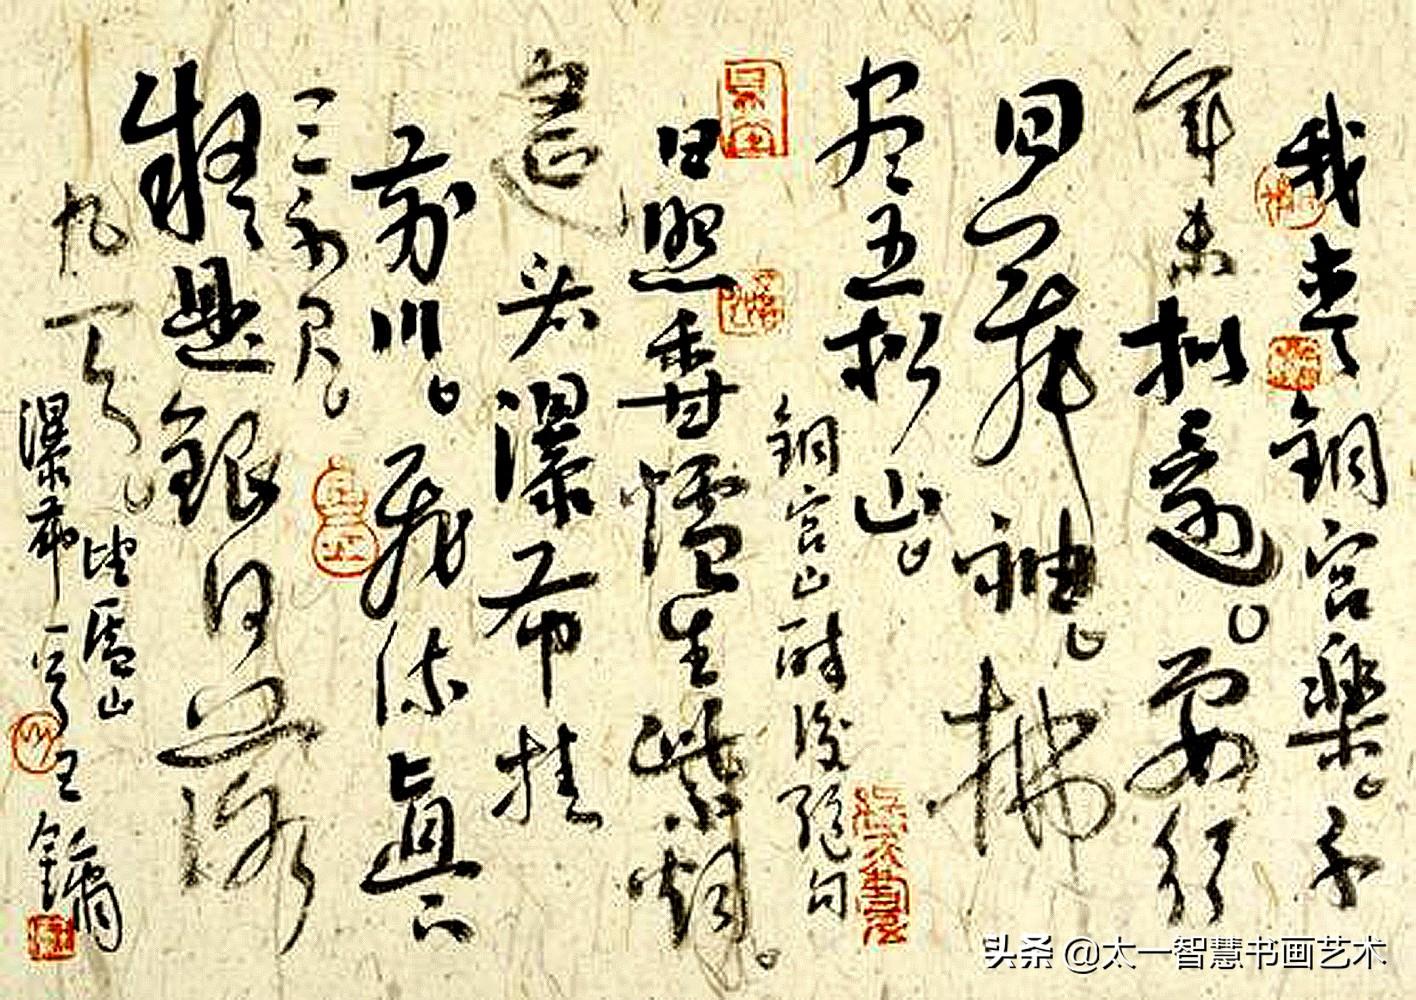 我爱銅官樂。千
年未拟還。要須
回舞袖。拂
尽五松山。
銅官山醉後絕句
日照香爐生紫烟。
遥看瀑布挂
前川。飛流直下
三千尺。
疑是銀河落
九天。望廬山
瀑布一首 王鏞
头条 @太一智慧书画艺术